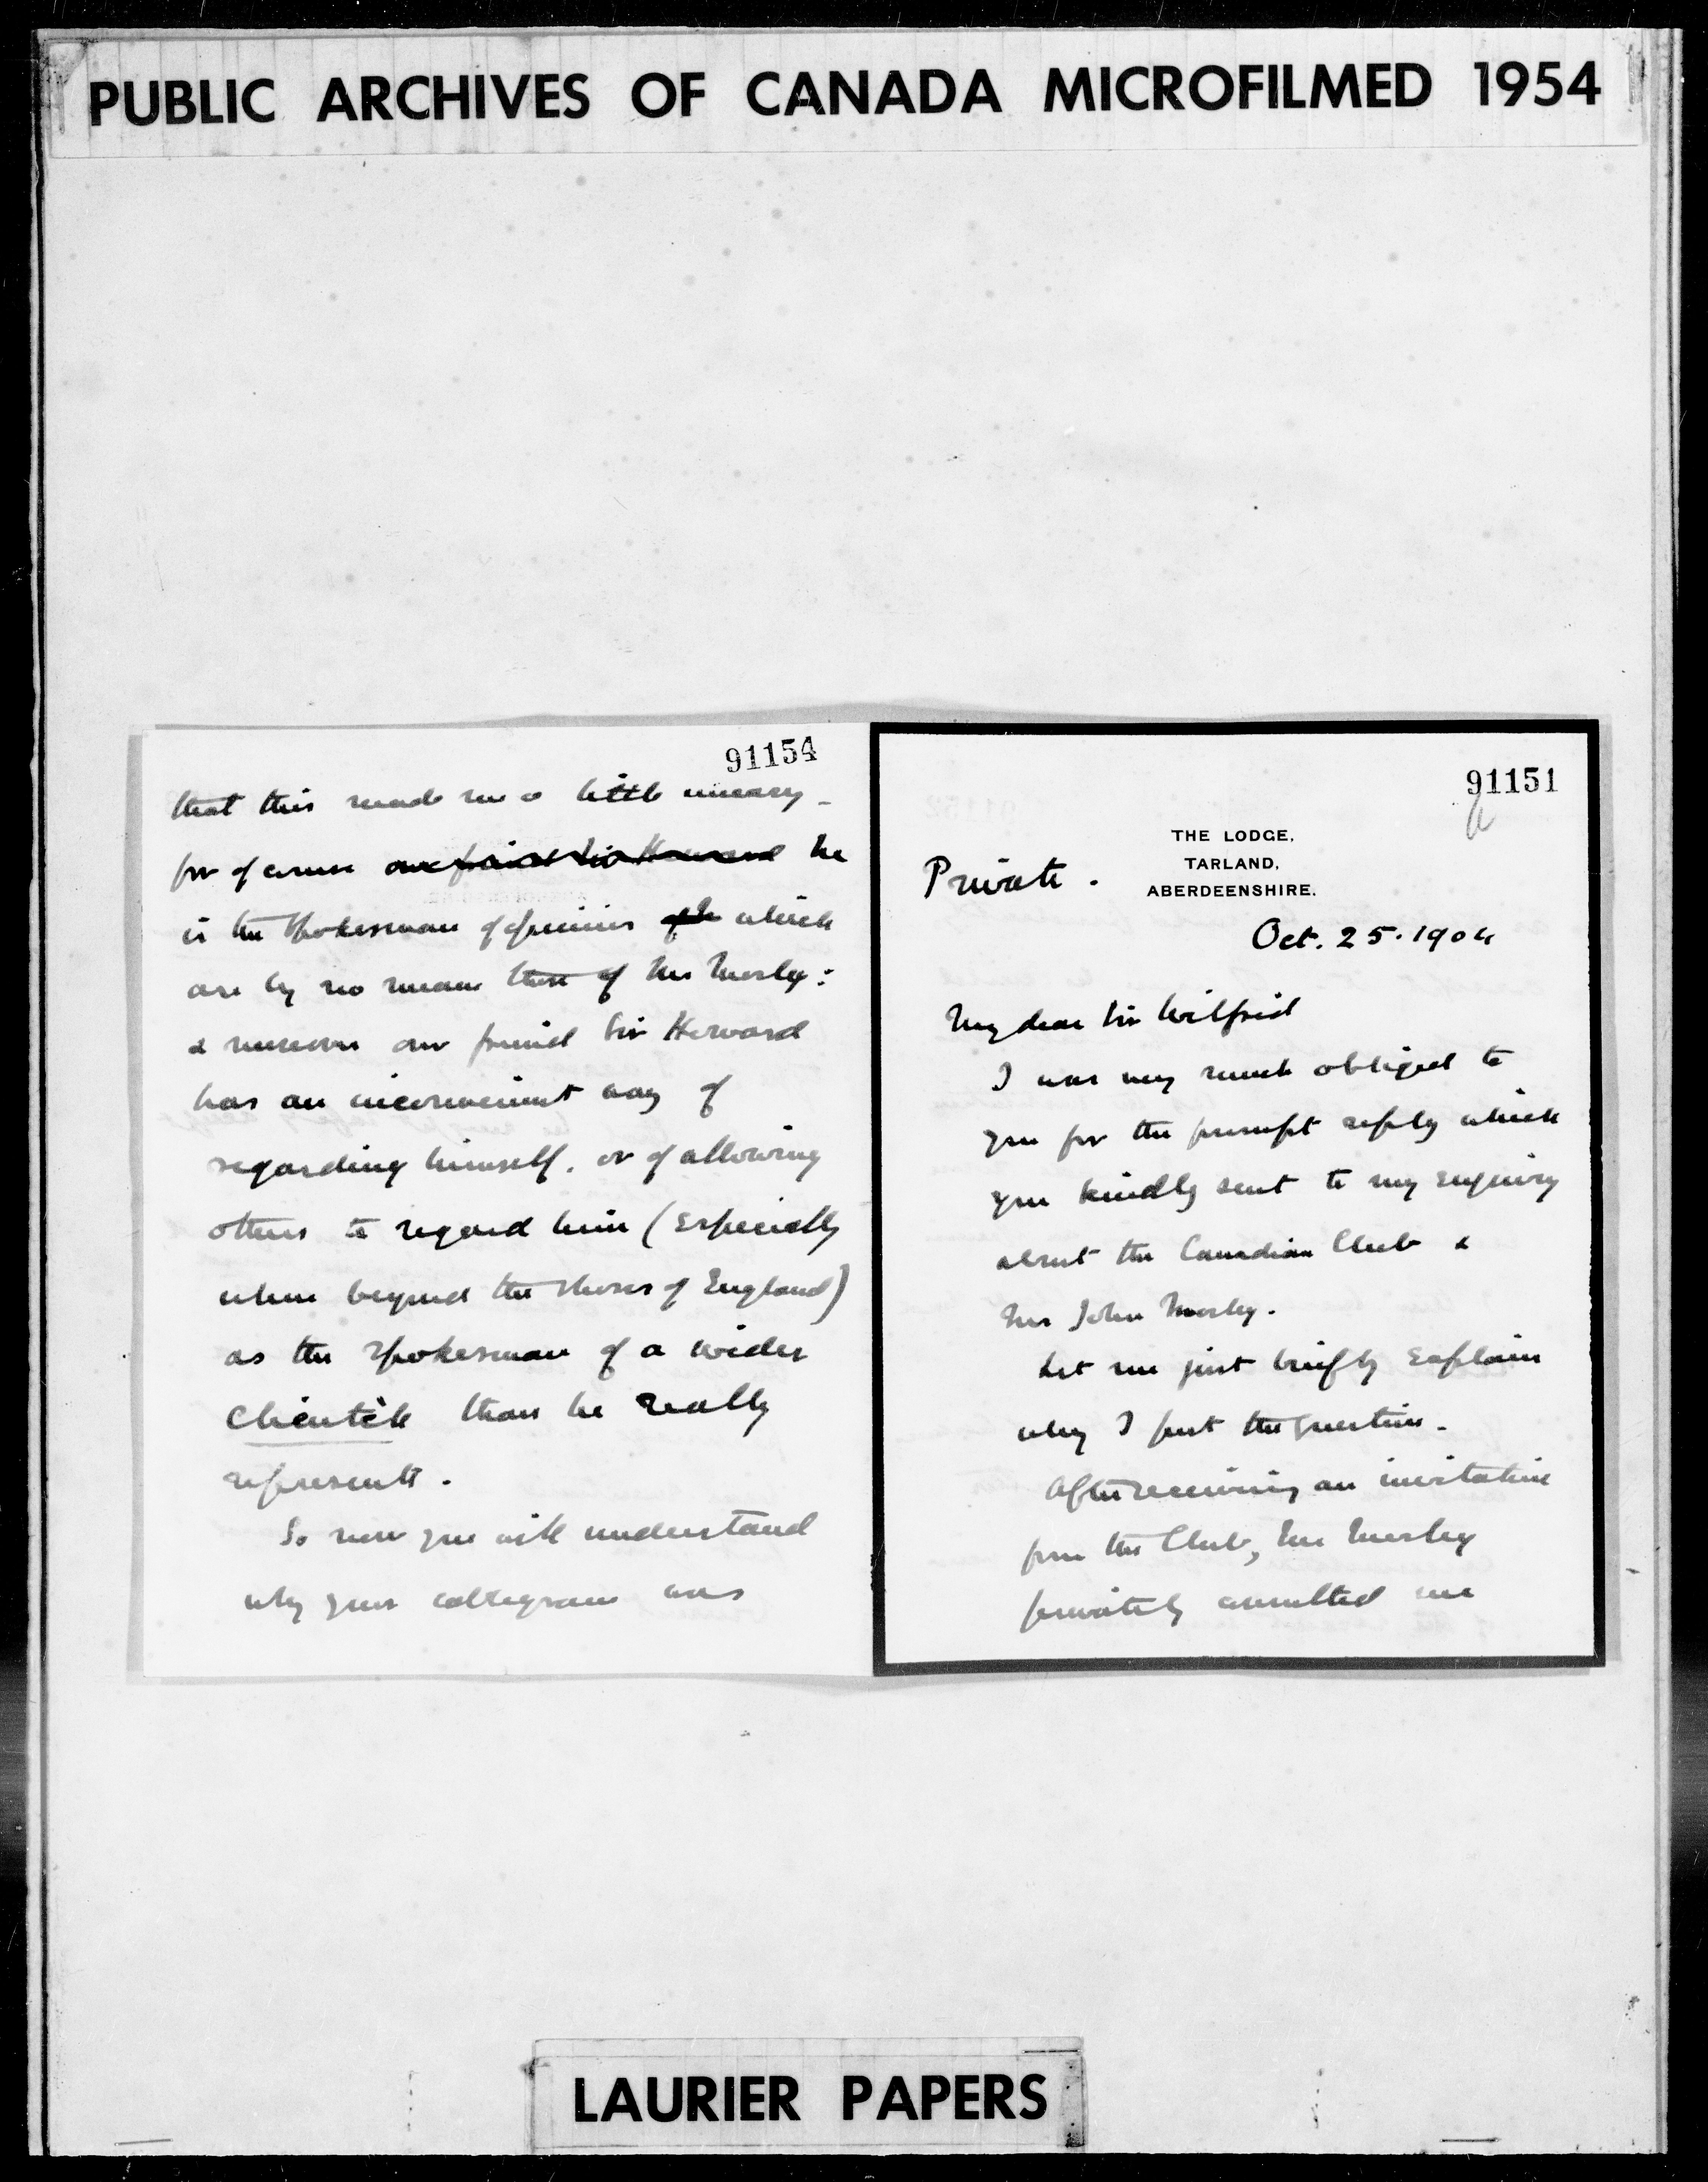 PUBLIC ARCHIVES OF CANADA MICROFILMED 1954
91154
that this made me a little uneasy –
for of course our friend Sir Howard he
is the spokesman of opinions of which
are by no means those of Mr Morley:
& moreover our friend Sir Howard
has an inconvenient way of
regarding himself, or of allowing
others to regard him (especially
when beyond the shores of England)
as the spokesman of a wider
clientèle than he really
represents.
So now you will understand
why your cablegram was
91151
THE LODGE,
TARLAND,
ABERDEENSHIRE.
Private.
Oct. 25. 1904
My dear Sir Wilfrid
I was very much obliged to
you for the prompt reply which
you kindly sent to my enquiry
about the Canadian Club &
Mr John Morley.
Let me just briefly explain
why I put the question.
After receiving an invitation
from the Club, Mr Morley
privately consulted me
LAURIER PAPERS